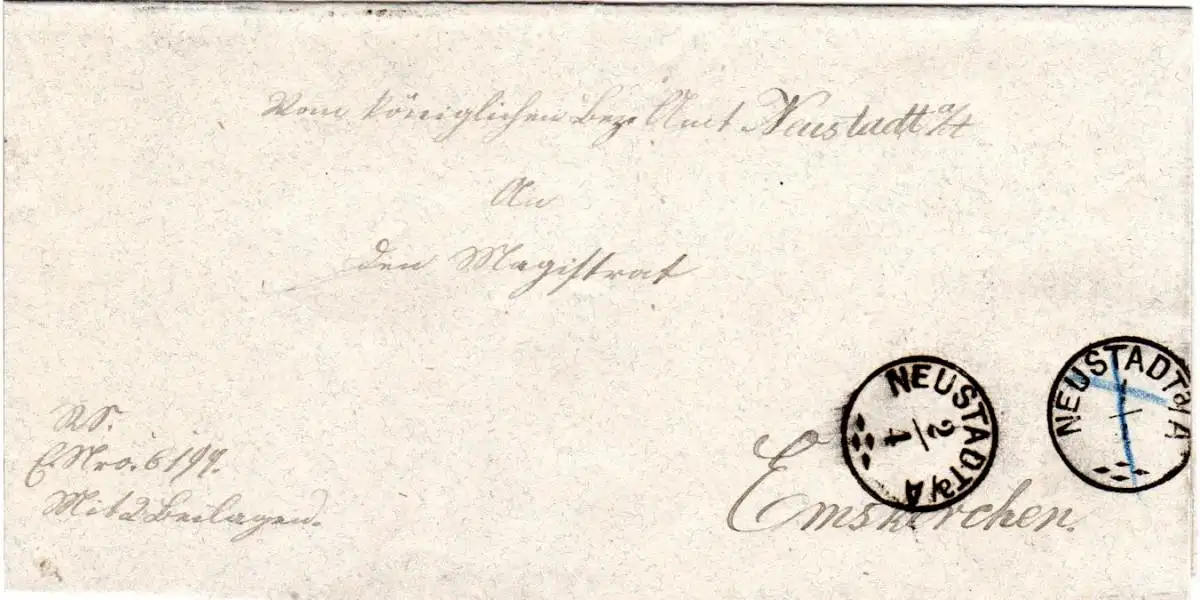 Vom königlichen Bez. Amt Neustadt a/A
An
den Magistrat
NEUSTADT a/A
2/4
NEUSTADT a/A
RS.
E. Nro. 6197.
Mit 2 Beilagen.
Emskirchen.